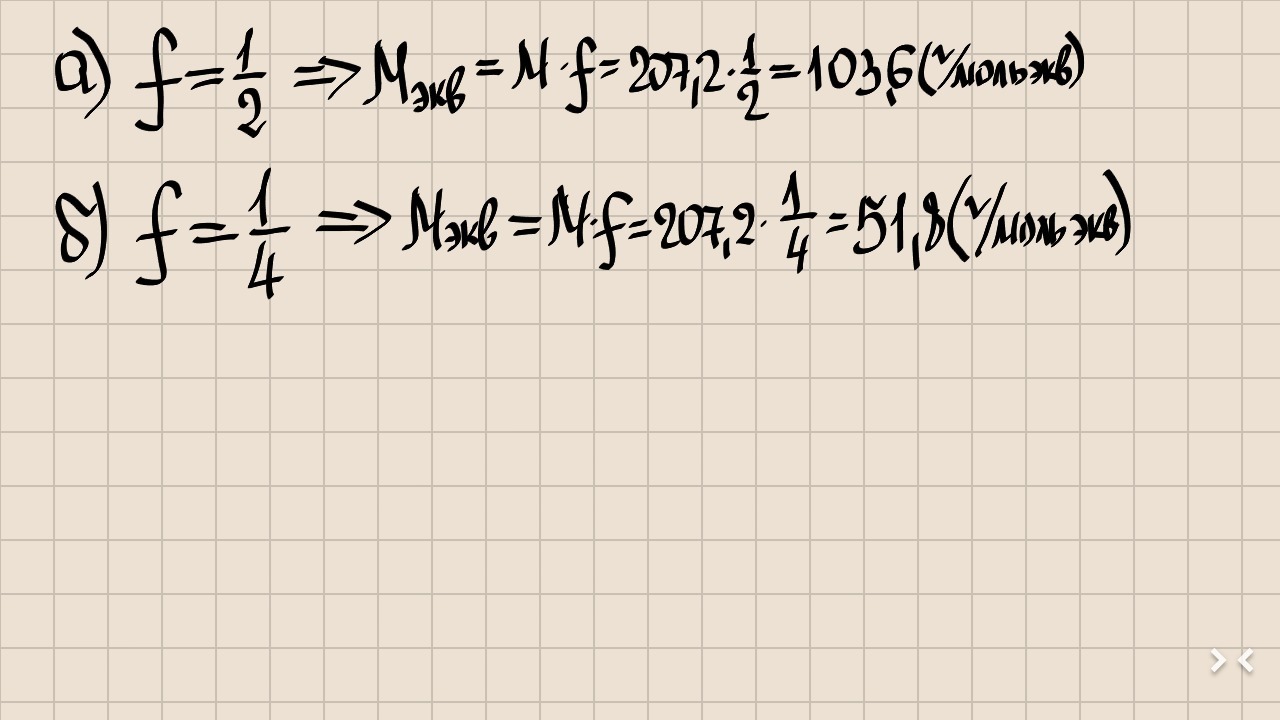 а) f = 1/2 => Mэкв = M · f = 207,2 · 1/2 = 103,6 (г/моль экв)
б) f = 1/4 => Mэкв = M · f = 207,2 · 1/4 = 51,8 (г/моль экв)